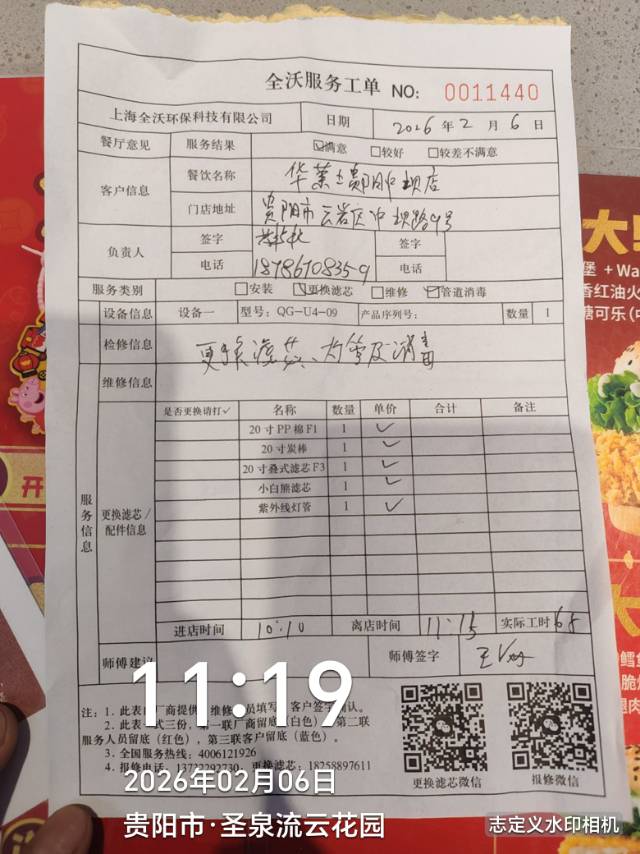 全沃服务工单 NO: 0011440
上海全沃环保科技有限公司 日期 2026年2月6日
餐厅意见 服务结果 ☑满意 □较好 □较差不满意
客户信息 餐饮名称 华莱士贵阳中坝店
门店地址 贵阳市云岩区中坝路9号
负责人 签字 签字
电话 18786708359 电话
服务类别 □安装 ☑更换滤芯 □维修 ☑管道消毒
设备信息 设备一 型号: QG-U4-09 产品序列号: 数量 1
检修信息 更换滤芯、灯管及消毒
维修信息
服务信息 更换滤芯/配件信息
是否更换请打✓ 名称 数量 单价 合计 备注
20寸PP棉F1 1 ✓
20寸炭棒 1 ✓
20寸叠式滤芯F3 1 ✓
小白熊滤芯 1 ✓
紫外线灯管 1 ✓
进店时间 10:10 离店时间 11:15 实际工时 65
师傅建议 师傅签字
注: 1. 此表由厂商提供, 维修人员填写, 客户签字确认。
2. 此表一式三份, 第一联厂商留底(白色), 第二联
服务人员留底(红色), 第三联客户留底(蓝色)。
3. 全国服务热线: 4006121926
4. 报修电话: 更换滤芯: 18258897611
更换滤芯微信 报修微信
11:19
2026年02月06日
贵阳市·圣泉流云花园
志定义水印相机
开
大
堡 + Wa
香红油火
糖可乐(中
大